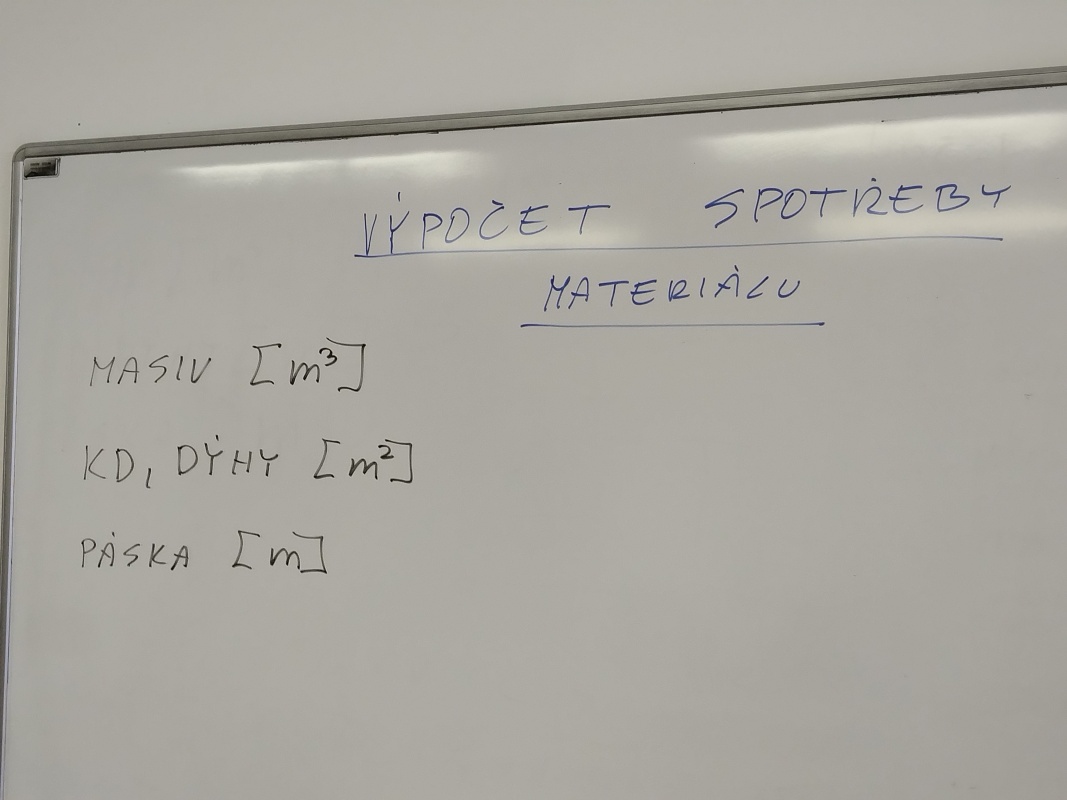 VÝPOČET SPOTŘEBY
MATERIÁLU
MASIV [m³]
KD, DÝHY [m²]
PÁSKA [m]